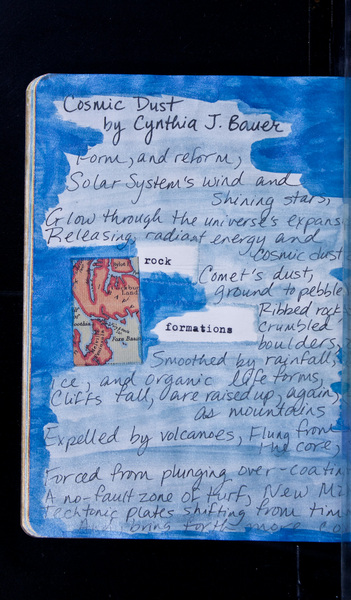 Cosmic Dust
by Cynthia J. Bauer
Form, and reform,
Solar System's wind and
Shining stars,
Glow through the universe's expans
Releasing radiant energy and
cosmic dust
rock
Comet's dust,
ground to pebble
Ribbed rock
formations
crumbled
boulders,
Smoothed by rainfall,
ice, and organic life forms,
Cliffs fall, are raised up, again,
as mountains
Expelled by volcanoes, Flung from
the core,
Forced from plunging over-coatin
A no-fault zone of turf, New M
Techtonic plates shifting from tim
And bring forth more co
Land
Faxe Bay